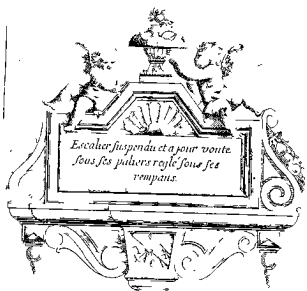 Escalier suspendu et a jour voute
sous ses paliers reglé sous ses
rempans.